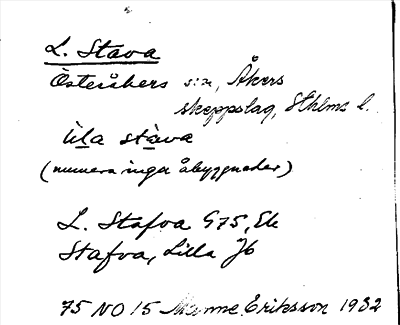 L. Stava
Österåkers sn, Åkers
skeppslag, Sthlms l.
lìla stàva
(numera inga åbyggnader)
L. Stafva G75, Ek
Stafva, Lilla Jb
75 NO 15 Manne Eriksson 1932